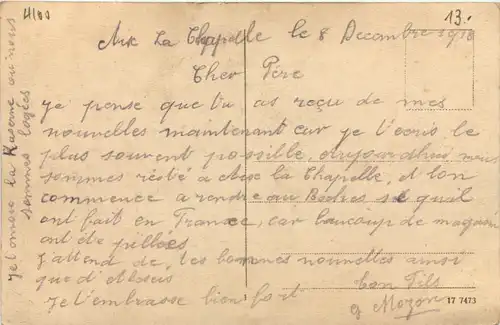 4100
13.-
Aix La Chapelle le 8 Decembre 1918
Cher Père
je pense que tu as reçu de mes
nouvelles maintenant car je t'ecris le
plus souvent possible, aujourdhui nous
sommes resté a Aix la Chapelle, et l'on
commence a rendre au Boches se quil
ont fait en France, car baucoup de magasin
ont été pillées
j'attend de tes bonnes nouvelles ainsi
que d'Alexis
Je t'embrasse bien fort ton Fils
G Mozon
17 7473
je t'envoie la Kaserne ou nous
sommes logées